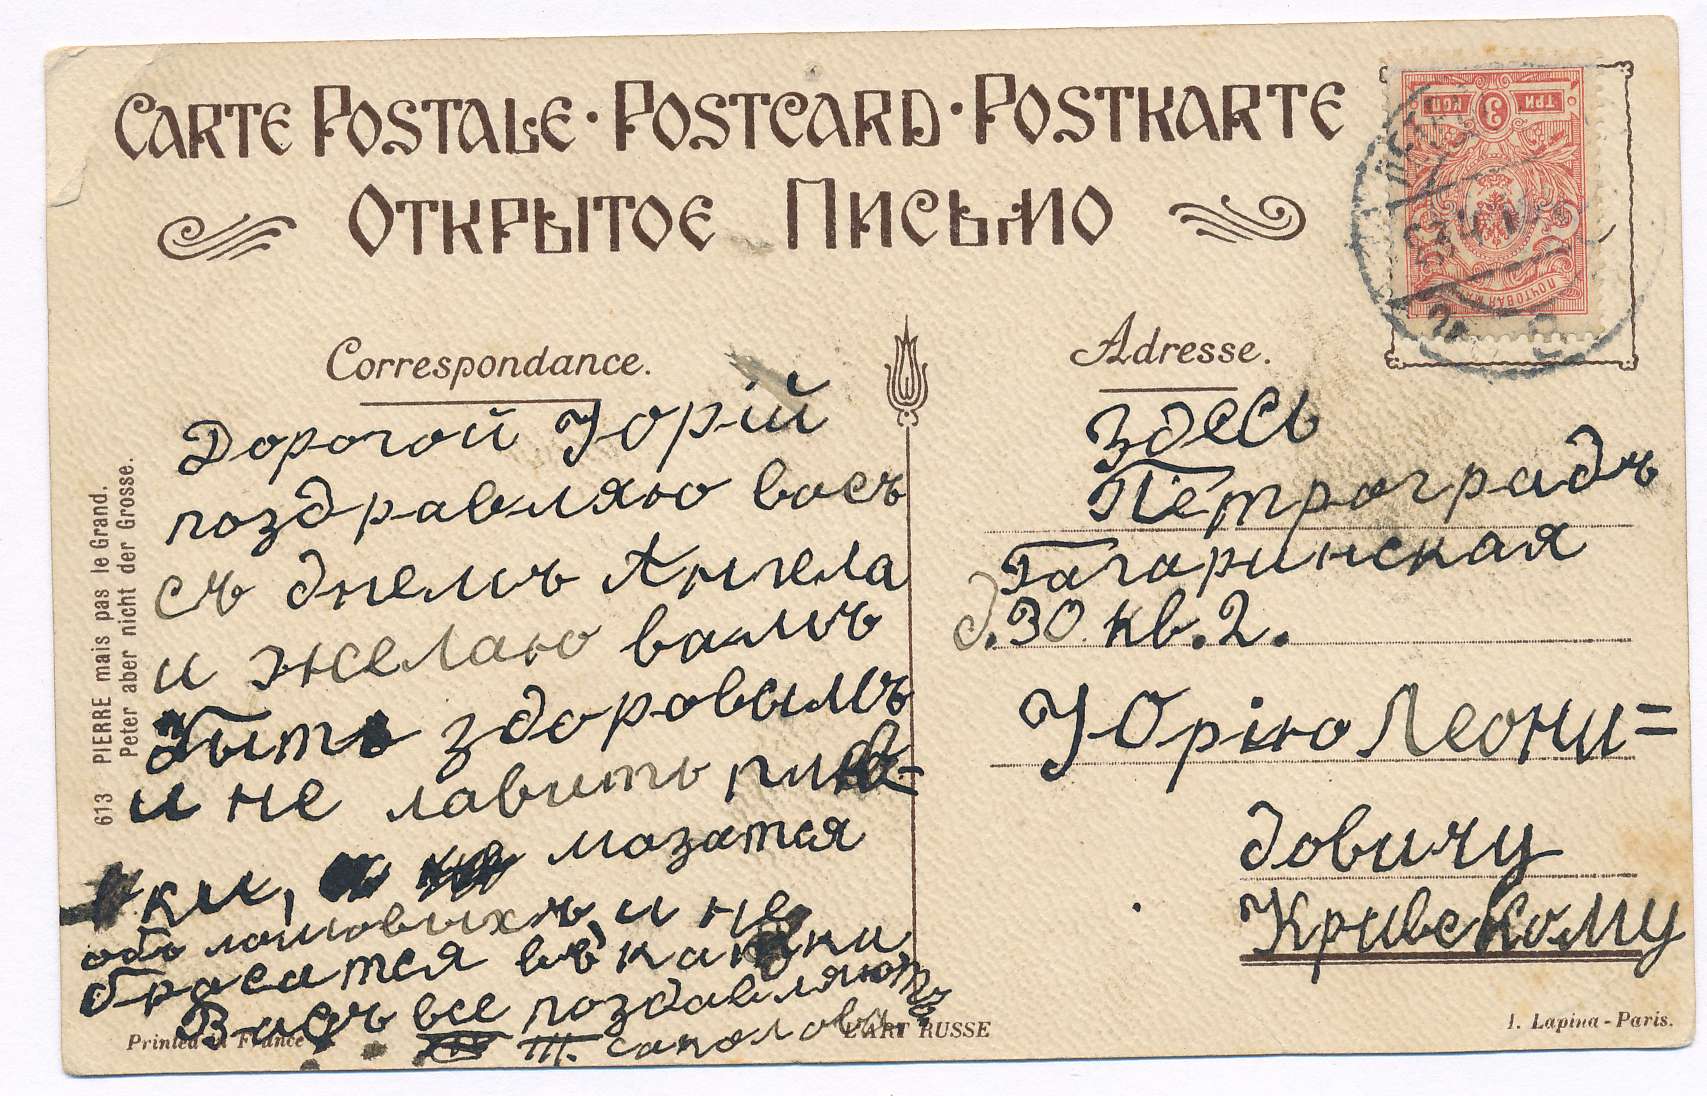 CARTE POSTALE · POSTCARD · POSTKARTE
ОТКРЫТОЕ ПИСЬМО
ТРИ 3 КОП
ПОЧТОВАЯ
Correspondance.
Дорогой Юрій
поздравляю восъ
съ днемъ Ангела
и желаю вамъ
быть здоровымъ
и не лавить пив-
вки, мазатся
объ ломовыхъ, и не
брасатся въ
Васъ все поздавляютъ
Т. саколовы
Adresse.
Здесь
Петроградъ
Гагаринская
д. 30 кв. 2.
Юрію Леони=
довичу
Кривскому
613 PIERRE mais pas le Grand.
Peter aber nicht der Grosse.
Printed in France
L'ART RUSSE
I. Lapina - Paris.